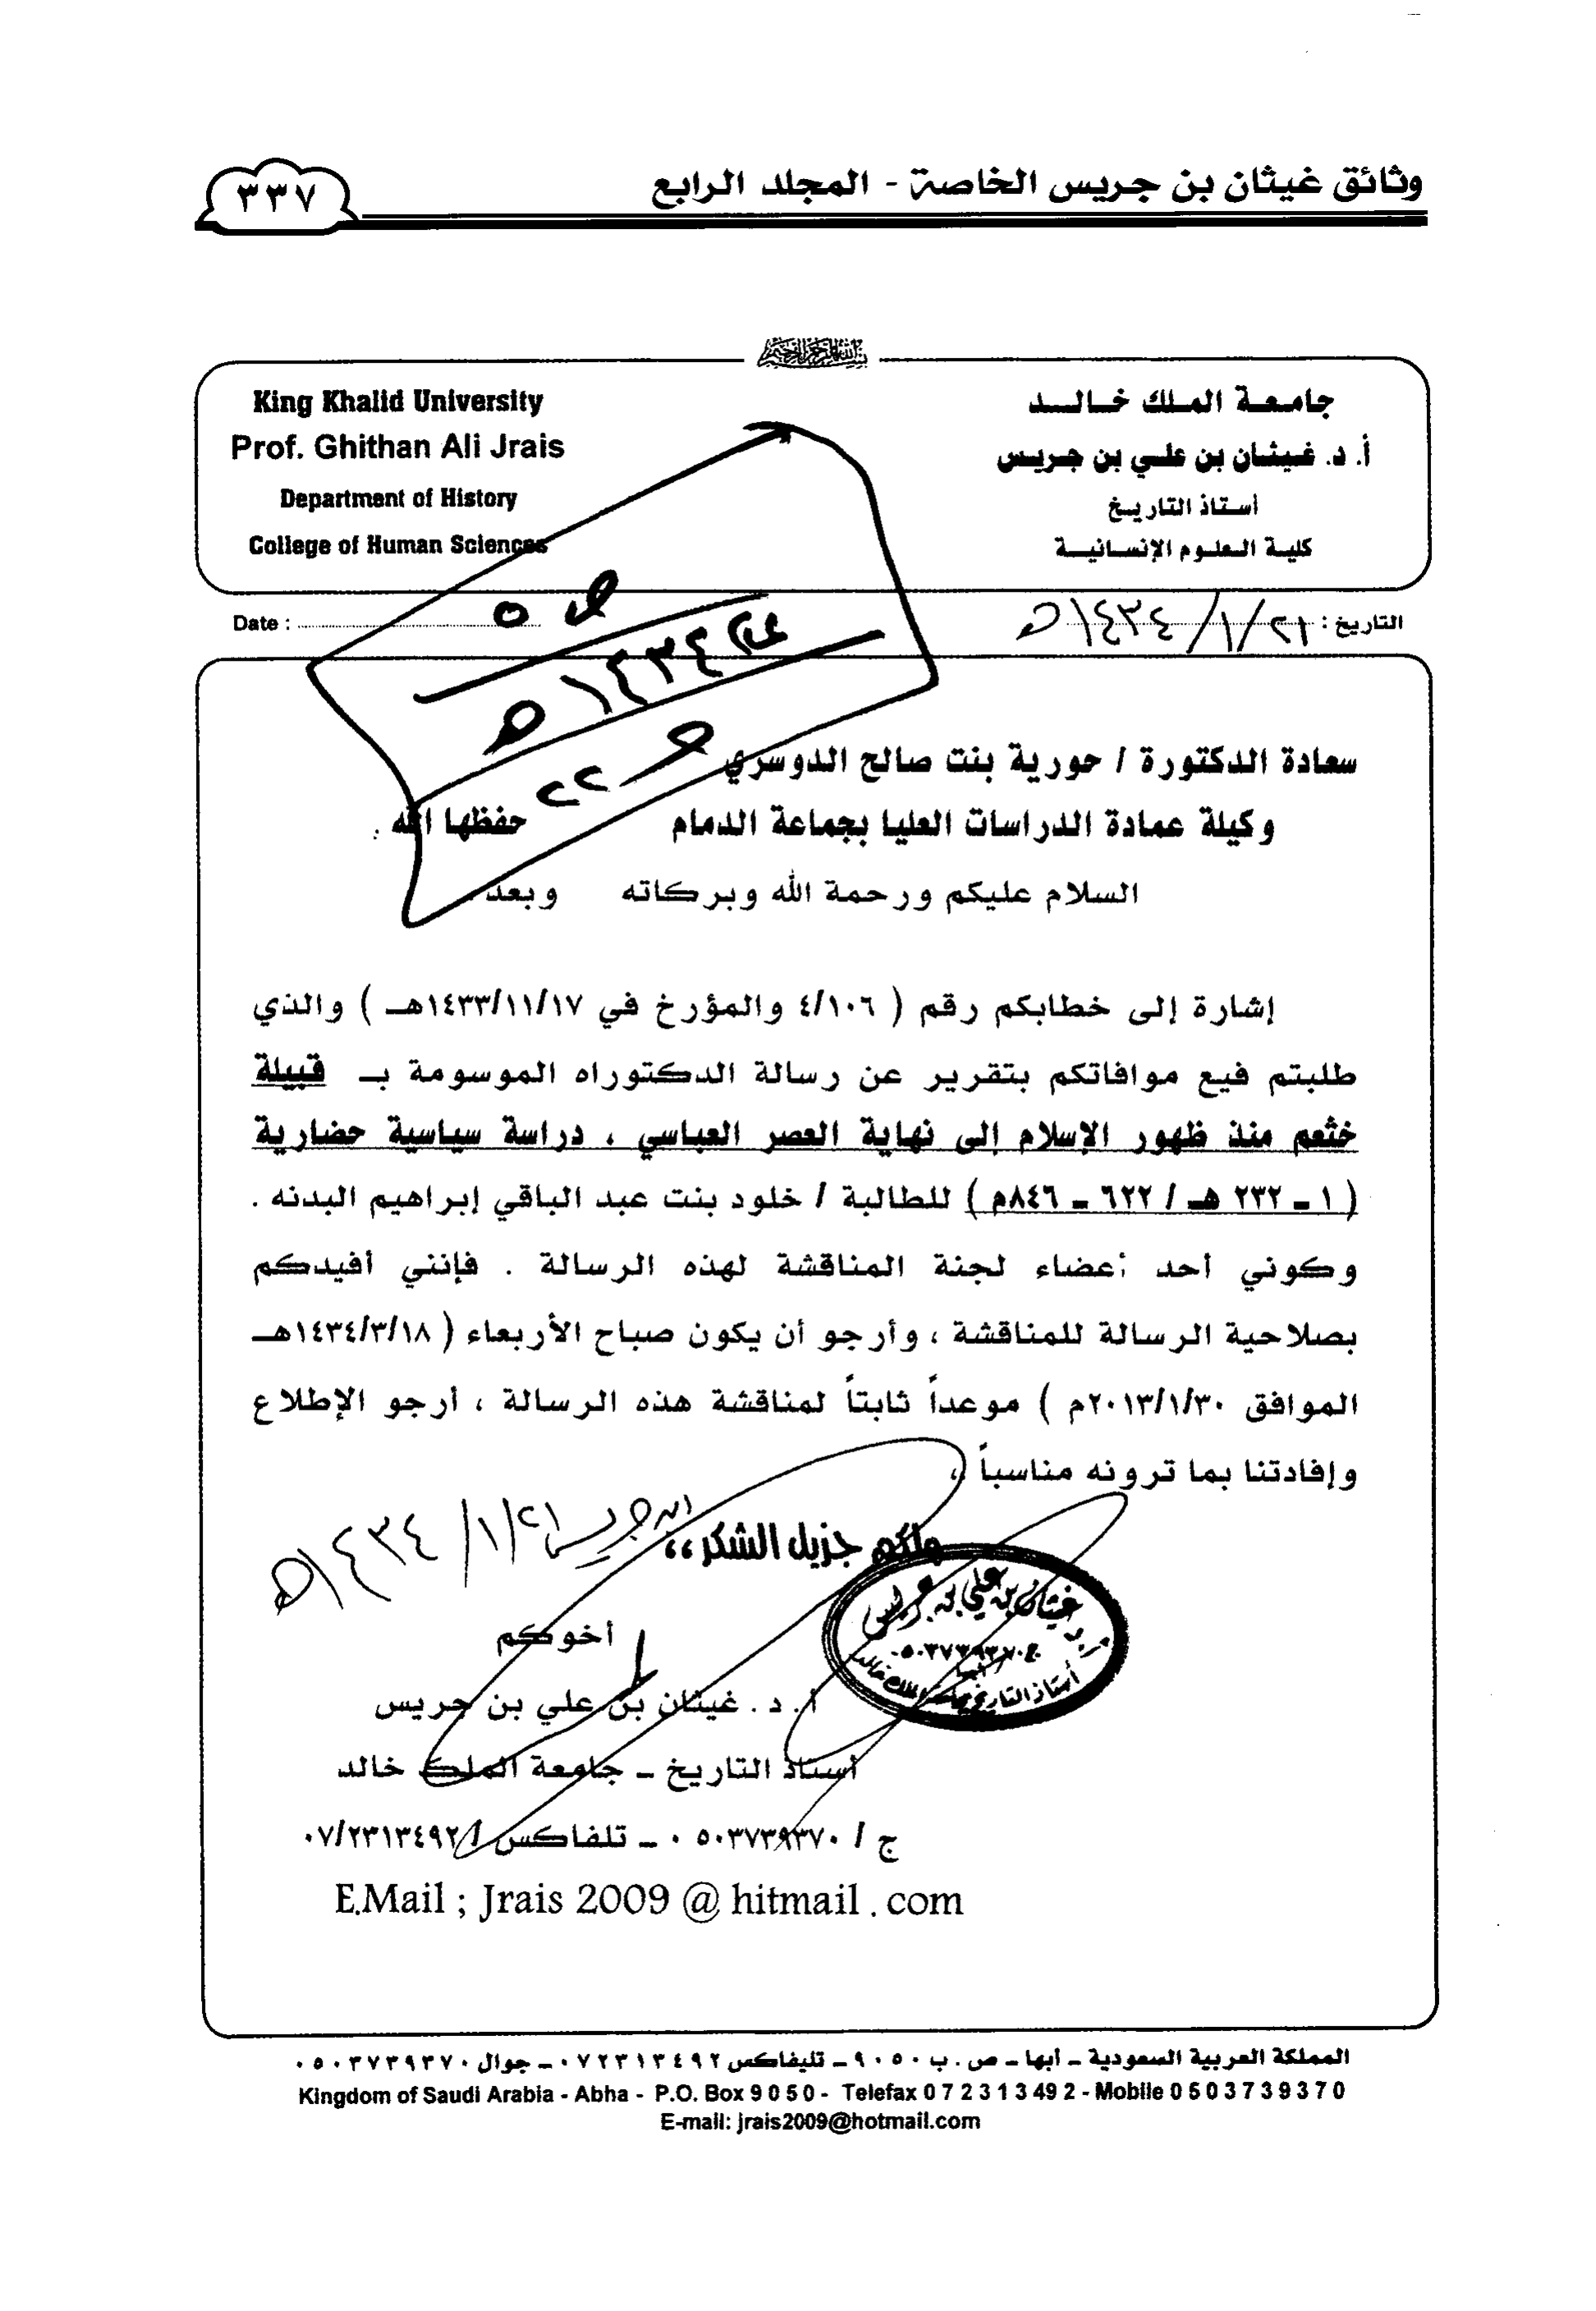 وثائق غيثان بن جريس الخاصة - المجلد الرابع
٣٣٧
بسم الله الرحمن الرحيم
جامعة الملك خالد
أ. د. غيثان بن علي بن جريس
أستاذ التاريخ
كلية العلوم الإنسانية
King Khalid University
Prof. Ghithan Ali Jrais
Department of History
College of Human Sciences
التاريخ : ٢١/١/١٤٣٤هـ
Date :
ص ٥
١٤٣٤هـ
ص ٢٢
سعادة الدكتورة / حورية بنت صالح الدوسري
وكيلة عمادة الدراسات العليا بجماعة الدمام حفظها الله .
السلام عليكم ورحمة الله وبركاته وبعد .
إشارة إلى خطابكم رقم ( ٤/١٠٦ والمؤرخ في ١٤٣٣/١١/١٧هـ ) والذي
طلبتم فيع موافاتكم بتقرير عن رسالة الدكتوراه الموسومة بـ قبيلة
خثعم منذ ظهور الإسلام إلى نهاية العصر العباسي ، دراسة سياسية حضارية
( ١ - ٢٣٢ هـ / ٦٢٢ - ٨٤٦م ) للطالبة / خلود بنت عبد الباقي إبراهيم البدنه .
وكوني أحد أعضاء لجنة المناقشة لهذه الرسالة . فإنني أفيدكم
بصلاحية الرسالة للمناقشة ، وأرجو أن يكون صباح الأربعاء ( ١٤٣٤/٣/١٨هـ
الموافق ٢٠١٣/١/٣٠م ) موعداً ثابتاً لمناقشة هذه الرسالة ، أرجو الإطلاع
وإفادتنا بما ترونه مناسباً ،
ولكم جزيل الشكر،،
ابن جريس ٢١/١/١٤٣٤هـ
أ.د غيثان بن علي بن جريس
ج: ٠٥٠٣٧٣٩٣٧٠
أبها
أستاذ التاريخ بجامعة الملك خالد
أخوكم
أ. د . غيثان بن علي بن جريس
أستاذ التاريخ - جامعة الملك خالد
ج / ٠٥٠٣٧٣٩٣٧٠ - تلفاكس / ٠٧/٢٣١٣٤٩٢
E.Mail ; Jrais 2009 @ hitmail . com
المملكة العربية السعودية - أبها - ص . ب ٩٠٥٠ - تليفاكس ٠٧٢٣١٣٤٩٢ - جوال ٠٥٠٣٧٣٩٣٧٠
Kingdom of Saudi Arabia - Abha - P.O. Box 9 0 5 0 - Telefax 0 7 2 3 1 3 49 2 - Mobile 0 5 0 3 7 3 9 3 7 0
E-mail: jrais2009@hotmail.com